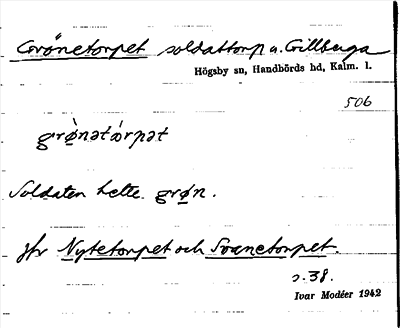 Grönetorpet soldattorp u. Gillberga
Högsby sn, Handbörds hd, Kalm. l.
506
grø̀nətɷ́rpət
Soldaten hette grøn.
jfr Nytetorpet och Svanetorpet.
s. 38.
Ivar Modéer 1942